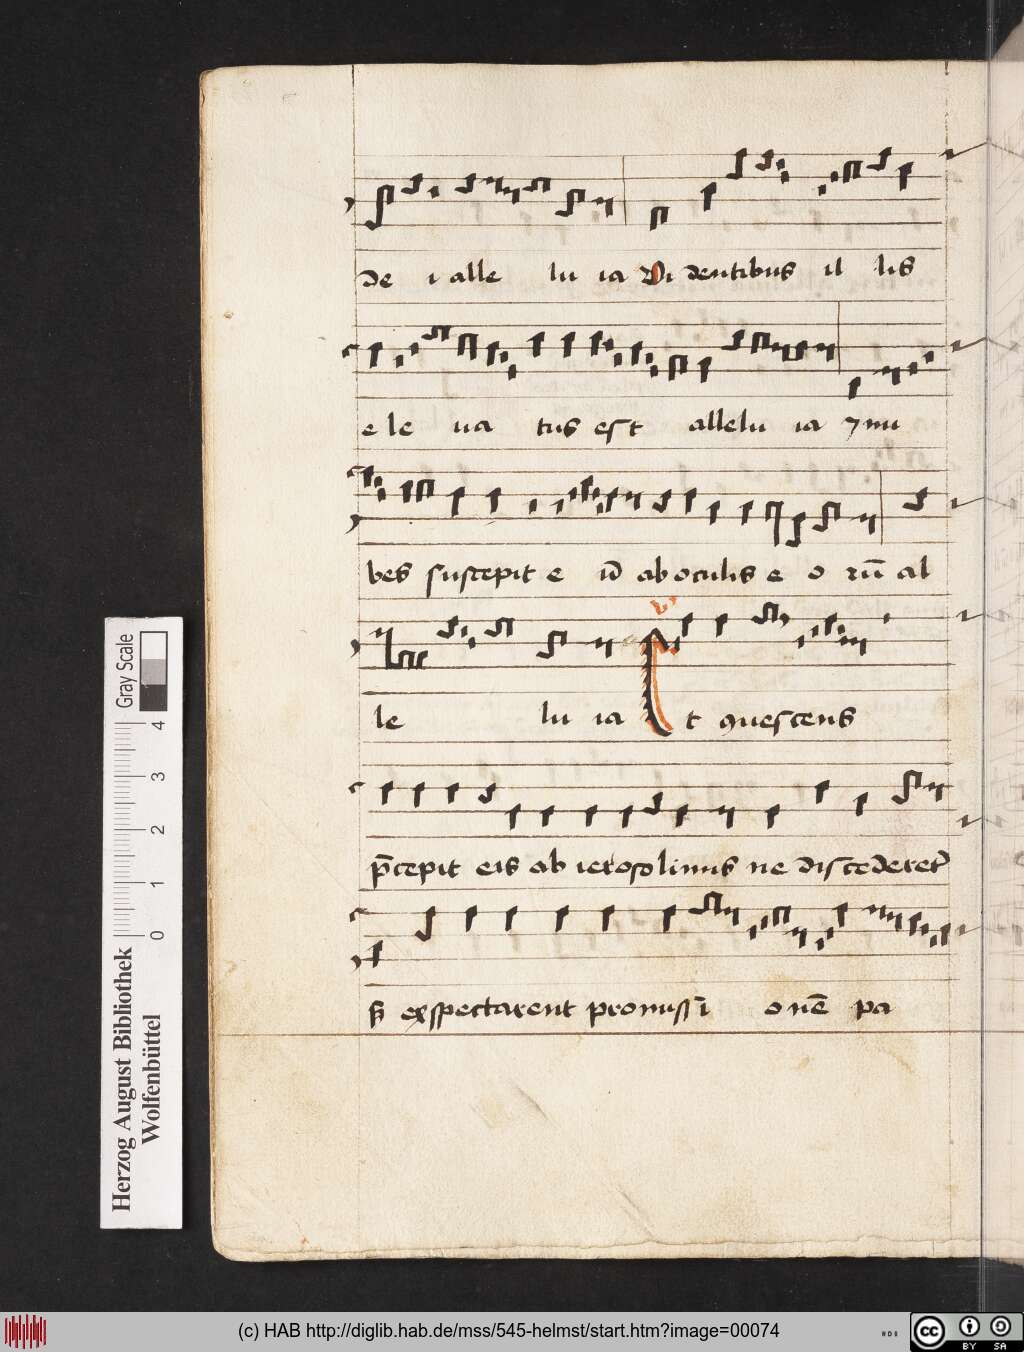 de i alle lu ia Vi dentibus il lis
e le ua tus est allelu ia ⁊ nu
bes suscepit e ū ab oculis e o rū al
le lu ia
v
Et quescens
p̄cepit eis ab ierosolimis ne discederet᷑
s̄ exspectarent promissi onē pa
Gray Scale
4
3
2
1
0
Herzog August Bibliothek
Wolfenbüttel
(c) HAB http://diglib.hab.de/mss/545-helmst/start.htm?image=00074
cc
BY SA